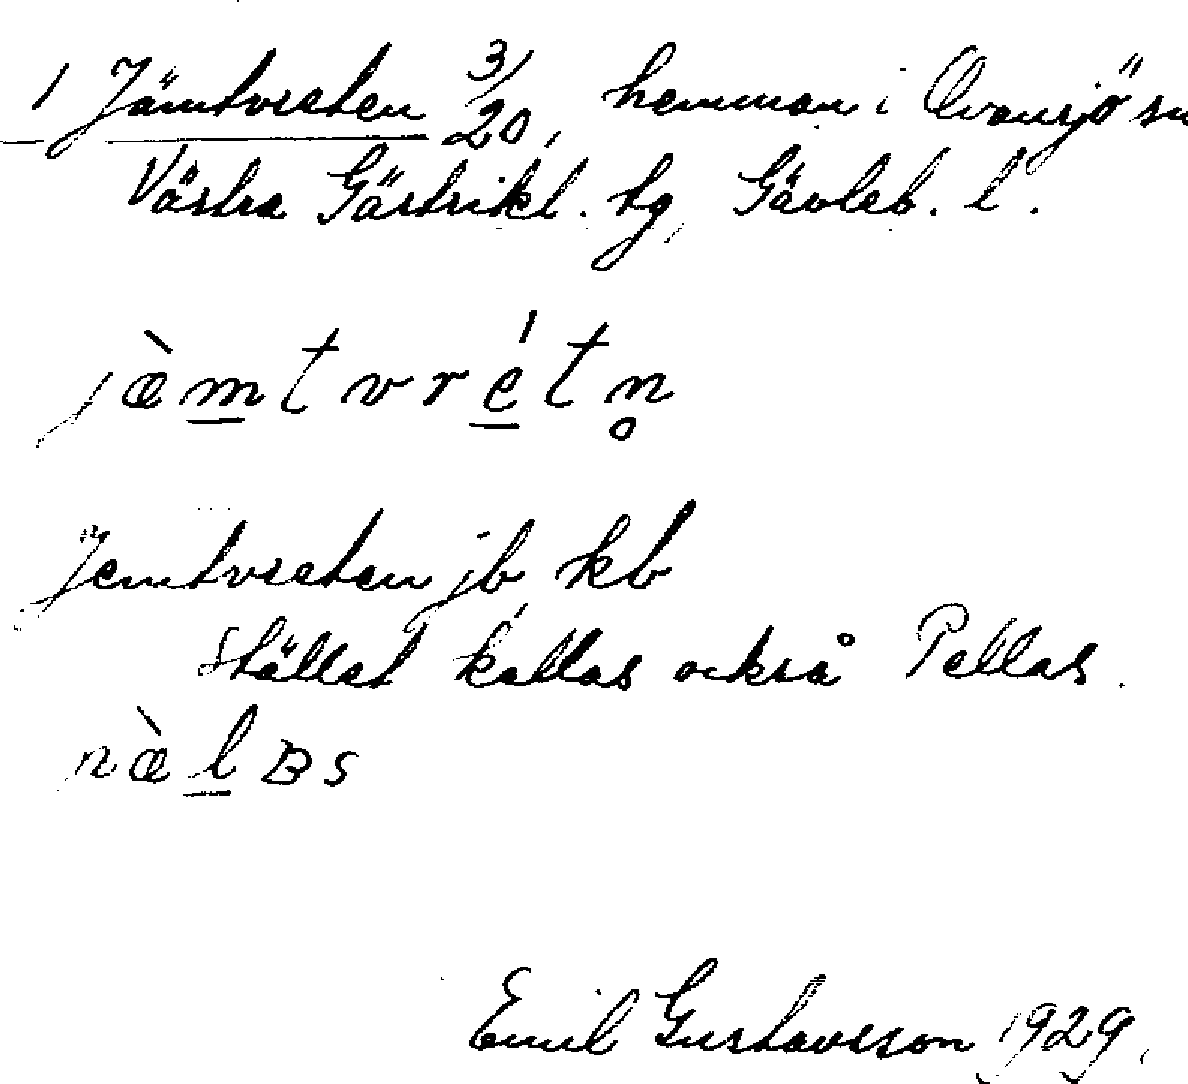 1 Jämtvreten 3/20, hemman i Ovansjö sn
Västra Gästrikl. tg, Gävleb. l.
jæ̀m̲tvré̲tn̥
Jemtvreten jb kb
Stället kallas också Pellas.
næ̀l̲ʙs
Emil Gustavsson 1929.